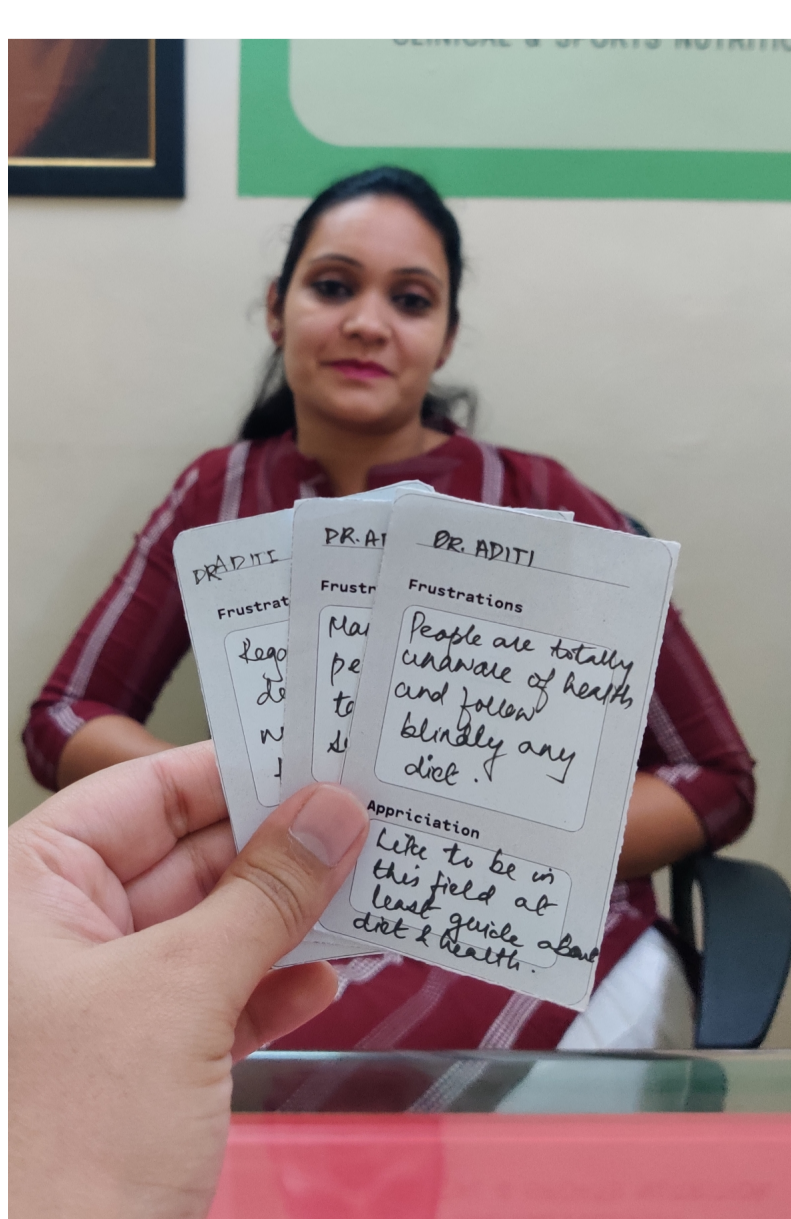 CLINICAL & SPORTS NUTRITIO
DR ADITI
Frustrat
DR. AD
Frustr
Ma
pe
to
DR. ADITI
Frustrations
People are totally
unaware of health
and follow
blindly any
diet.
Appriciation
Like to be in
this field at
least guide about
diet & health.